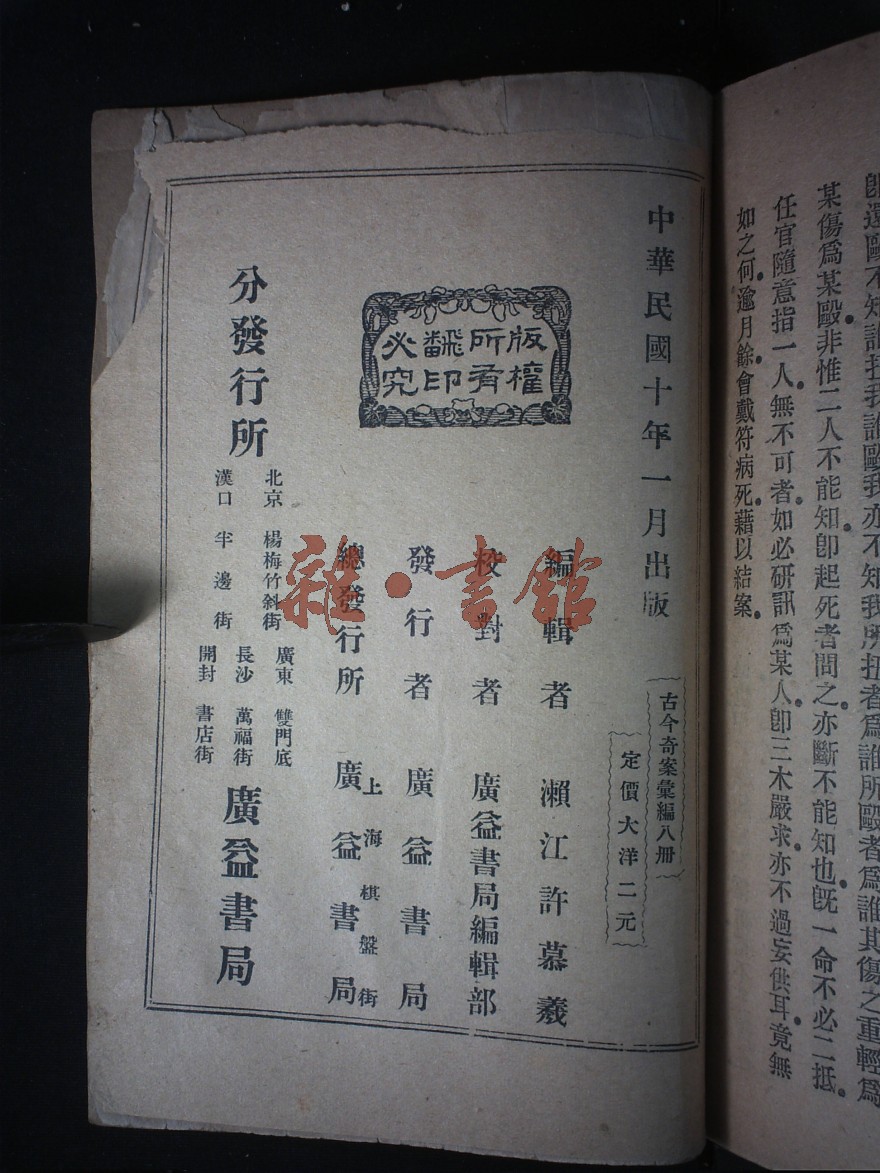 即還毆不知誰扭我誰毆我亦不知我所扭者爲誰所毆者爲誰其傷之重輕爲
某傷爲某毆非惟二人不能知卽起死者問之亦斷不能知也旣一命不必二抵
任官隨意指一人無不可者如必研訊爲某人卽三木嚴求亦不過妄供耳竟無
如之何逾月餘會戴符病死藉以結案
中華民國十年一月出版
古今奇案彙編八册
定價大洋二元
版權所有翻印必究
編輯者 瀨江許慕羲
校對者 廣益書局編輯部
發行者 廣益書局
總發行所 上海棋盤街 廣益書局
分發行所
北京 楊梅竹斜街
漢口 半邊街
廣東 雙門底
長沙 萬福街
開封 書店街
廣益書局
雜·書館